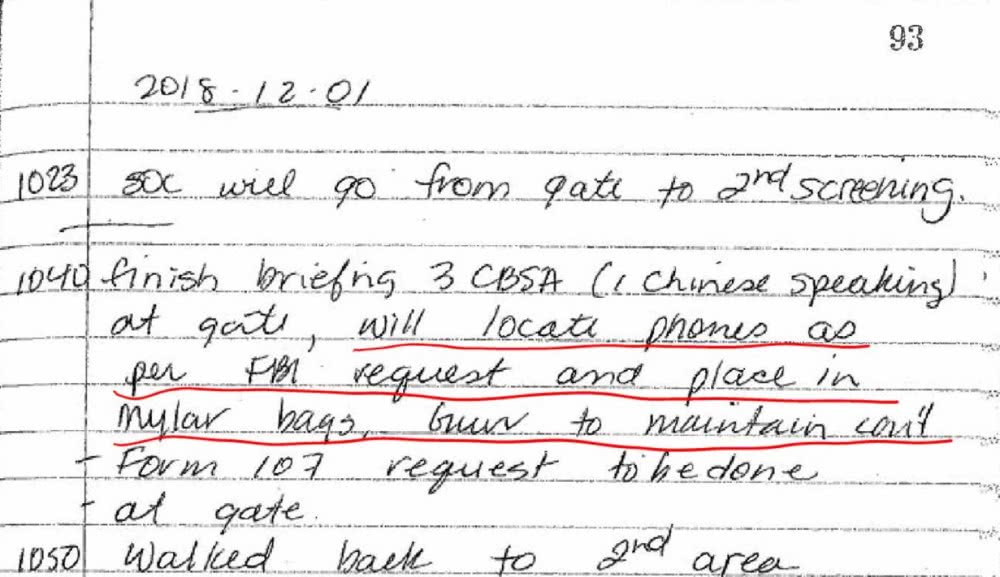 93
2018-12-01
1023 SOC will go from gate to 2nd screening.
1040 finish briefing 3 CBSA (1 Chinese speaking)
at gate, will locate phones as
per FBI request and place in
mylar bags, to maintain
- Form 107 request to be done
- at gate.
1050 Walked back to 2nd area